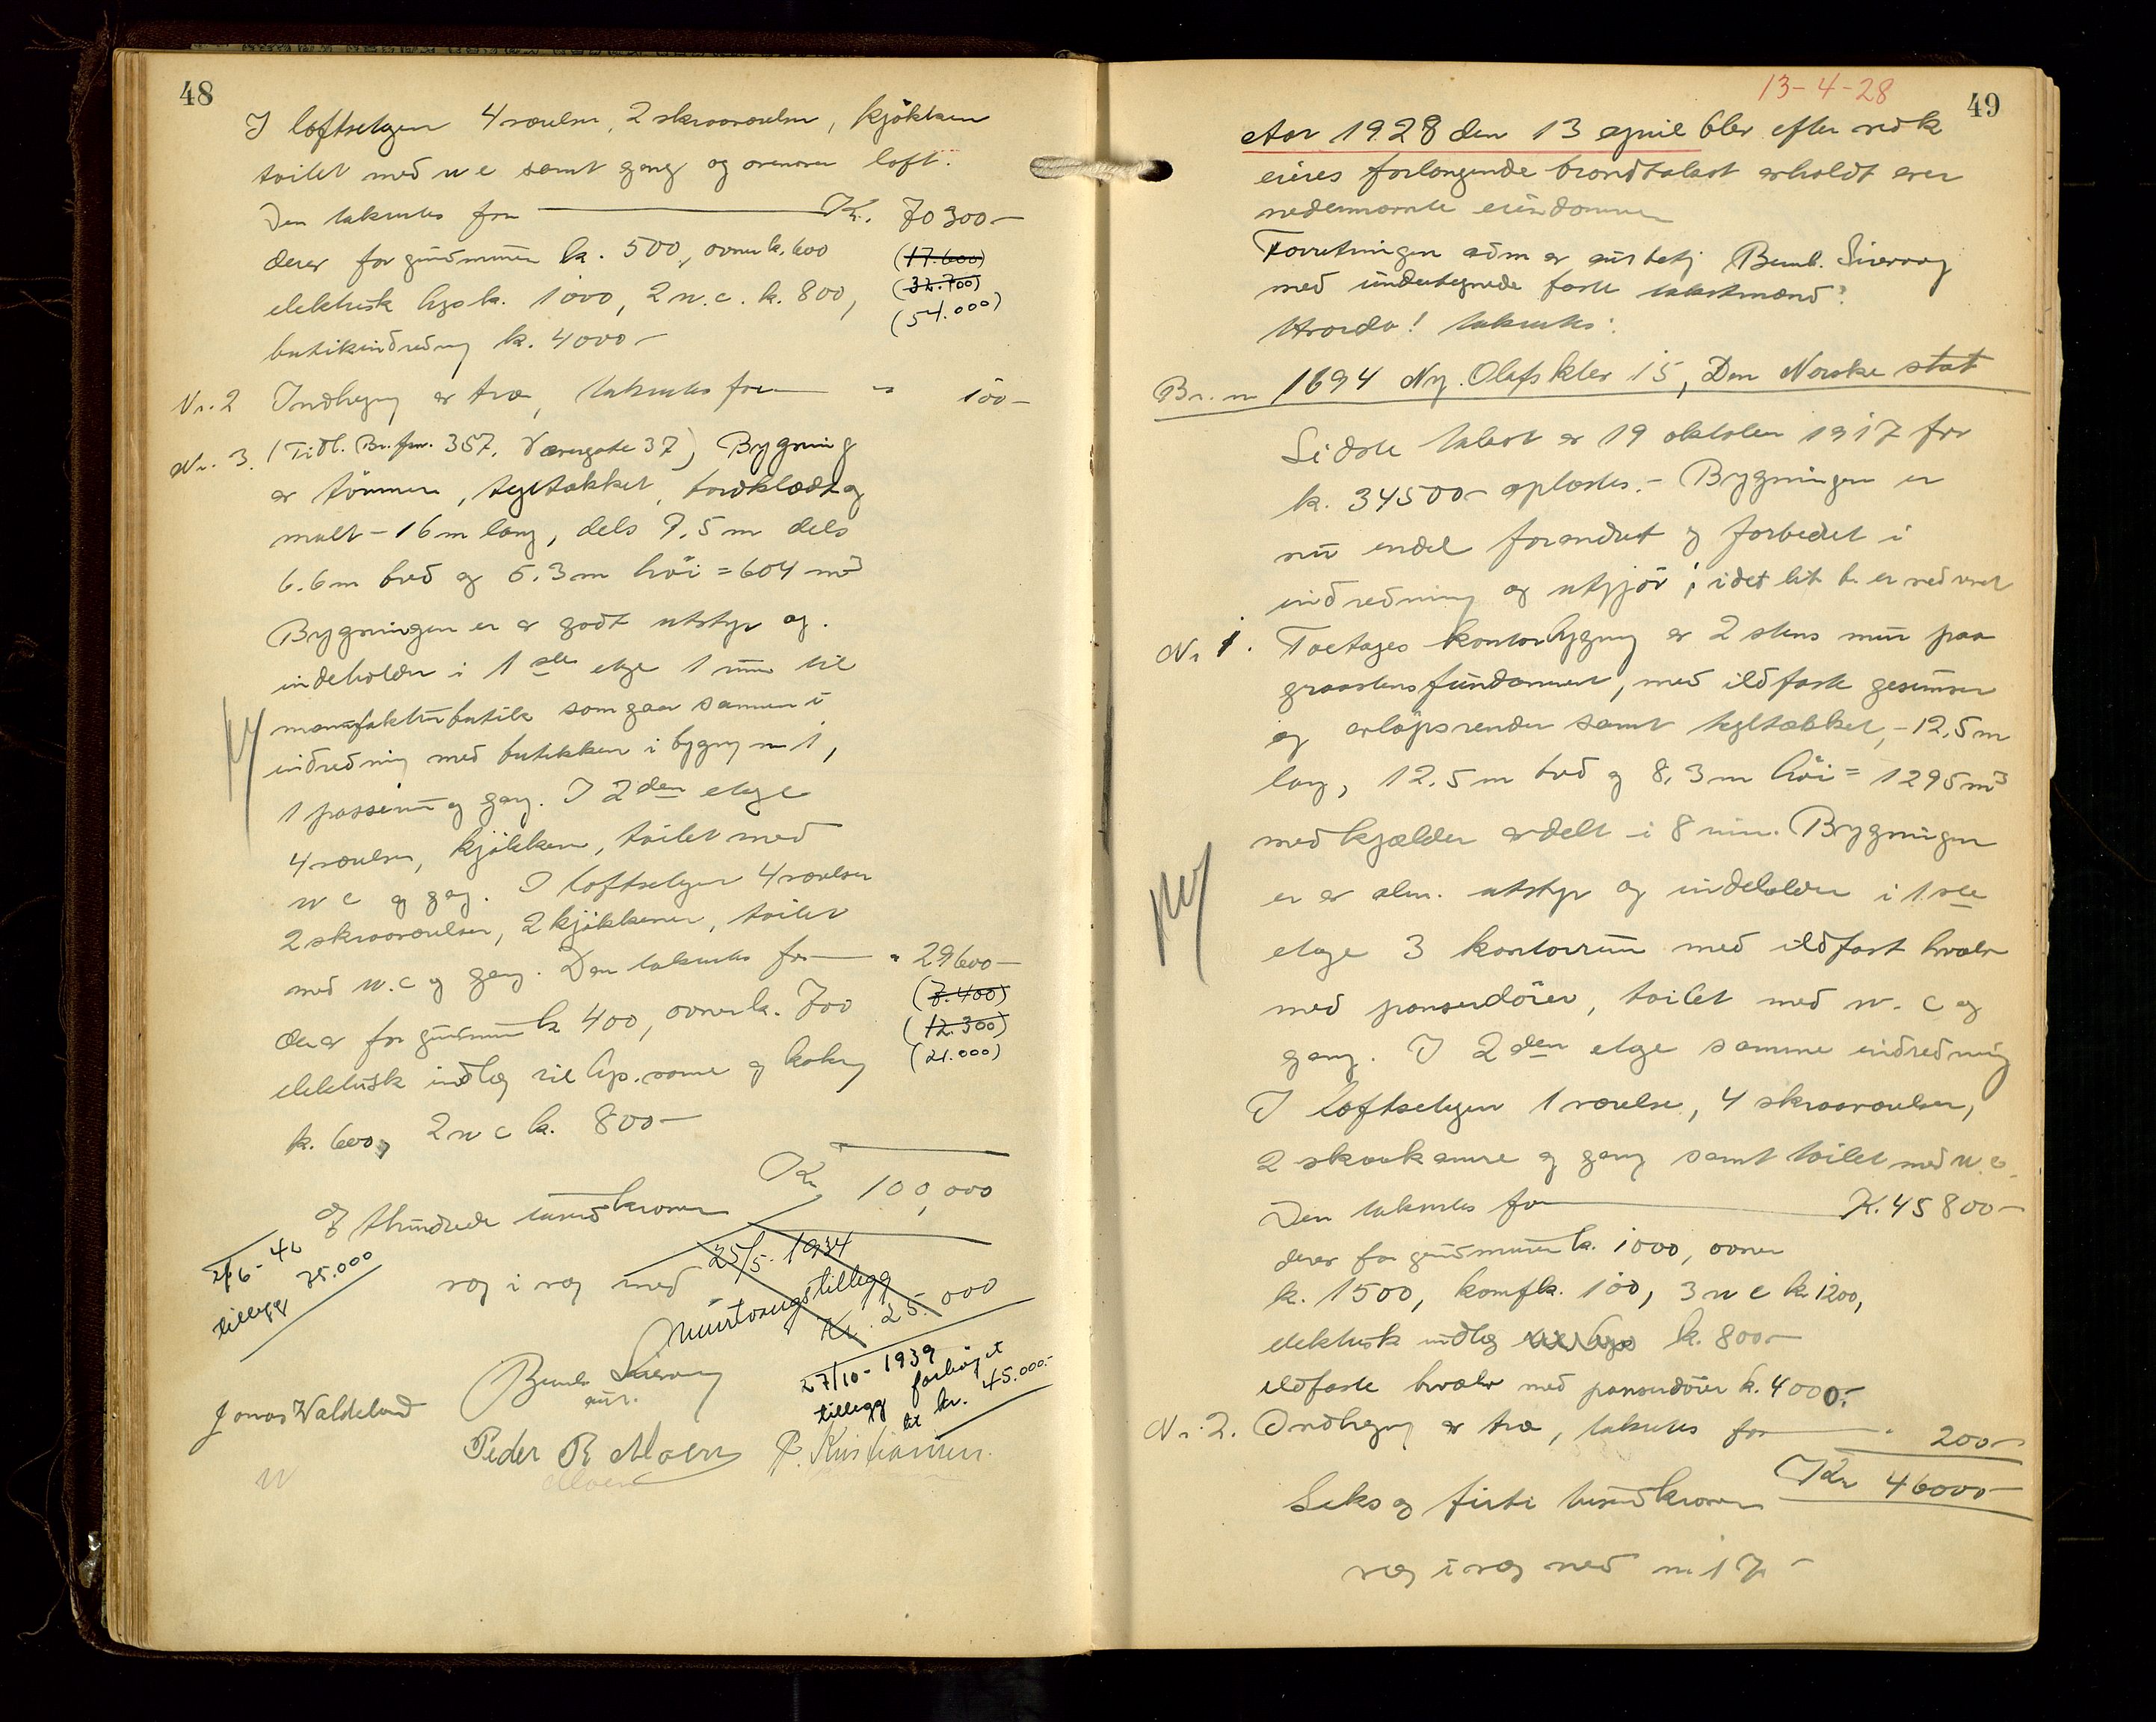 48
I loftsetagen 4 værelser, 2 skraaværelser, kjökken
toilet med w c samt gang og ovenover loft.
Den takseres for Kr. 70 300 —
derav for grundmuren k. 500, ovner k. 600
(17.600)
elektrisk lys k. 1000, 2 w.c. k. 800,
(32.700)
(54.000)
butikindredning k. 4000 —
Nr. 2 Indhegning av træ, takseres for " 100 —
Nr. 3. (Tidl. Br. 357, 37) Bygning
av tömmer, tegltækket, bordklædt og
malt — 16 m lang, dels 7.5 m dels
6.6 m bred og 5.3 m höi = 604 m3
Bygningen er av godt utstyr og
indeholder i 1ste etage 1 rum til
manufakturbutik som gaar sammen i
indredning med butikken i bygning nr 1,
ny
1 passerum og gang. I 2den etage
4 værelser, kjökken, toilet med
w c og gang. I loftsetagen 4 værelser
2 skraaværelser, 2 kjökkener, toilet
med w.c og gang. Den takseres for " 29600 —
(7.400)
derav for grundmuren k 400, ovner k. 700
(12.300)
elektrisk indlæg til lys, varme og kokning
(21.000)
k. 600, 2 w c k. 800 —
Kr 100,000
Et hundrede tusend kroner
6 - 46
tillegg 75.000
væg i væg med
25/5- 1934
Murtvangstillegg
Kr. 25.000
27/10- 1939
tillegg forhöyet
til kr. 45.000.-
Jonas Waldeland
Peder R Moen P. Kristiansen.
13-4-28
49
Aar 1928 den 13 april blev efter vedk
eieres forlangende brandtakst avholdt over
nedennævnte eiendommer
Forretningen adm av
med undertegnede faste takstmænd:
Hvorda! takseres:
Br. nr 1694 Ny. Olafsklev 15, Den Norske stat
Sidste takst av 19 oktober 1917 for
k. 34500 — oplæstes. — Bygningen er
nu endel forandret og forbedret i
indredning og utgjör; idet lit b. er nedrevet
Nr 1. Toetages kontorbygning av 2 stens mur paa
graastensfundament, med ildfaste gesimser
og avlöpsrender samt tegltækket, — 12.5 m
lang, 12.5 m bred og 8,3 m höi = 1295 m3
med kjælder avdelt i 8 rum. Bygningen
ny
er av alm. utstyr og indeholder i 1ste
etage 3 kontorrum med ildfast hvælv
med panserdörer, toilet med w. c og
gang. I 2den etage samme indredning
I loftsetagen 1 værelse, 4 skraaværelser,
2 skraakamre og gang samt toilet med w.c.
Den takseres for K. 45 800 —
derav for grundmuren k. 1000, ovner
k. 1500, komf k. 100, 3 w c k 1200,
elektrisk indlæg k. 800 —
ildfaste hvælv med panserdörer k. 4000.-
Nr. 2. Indhegning av træ, takseres for " 200 —
Kr 46000 —
Seks og firti tusend kroner
væg i væg med nr 17 —